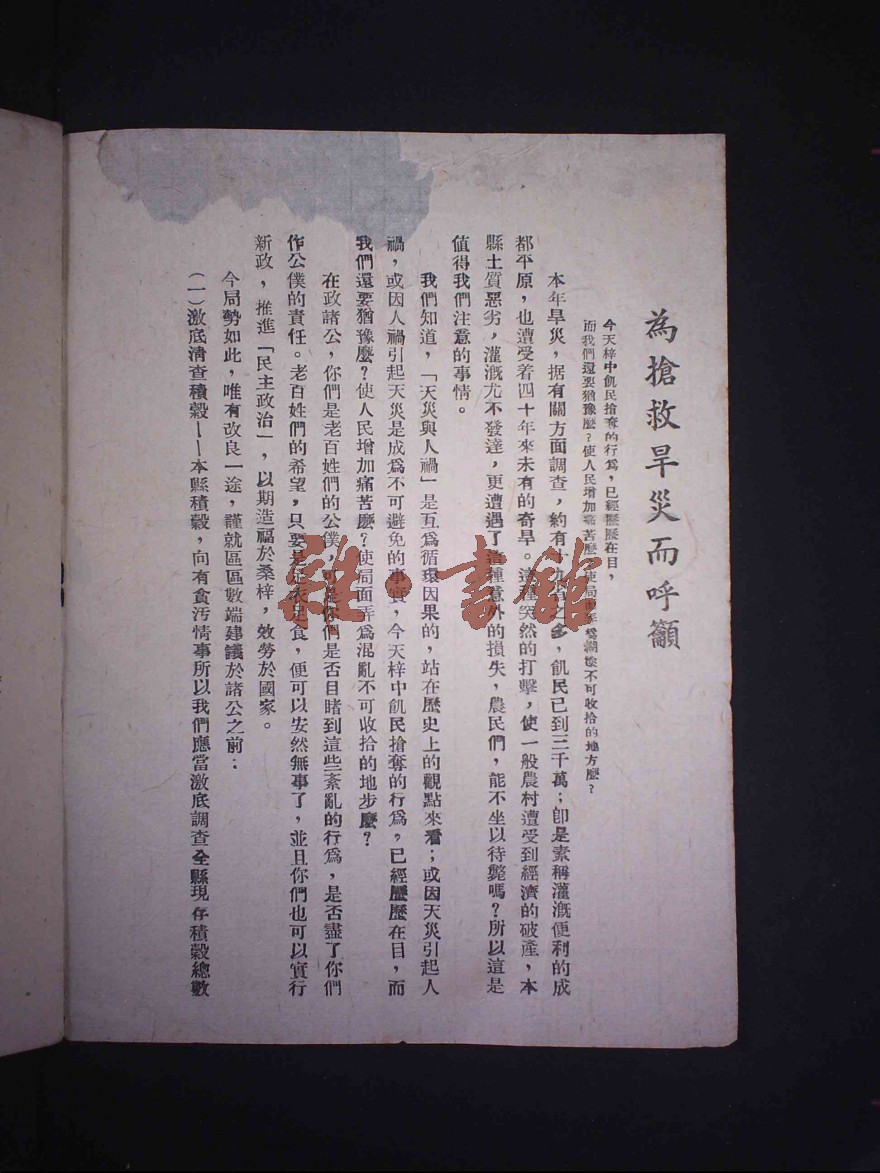 為搶救旱災而呼籲
今天梓中飢民搶奪的行為，已經歷歷在目，
而我們還要猶豫麼？使人民增加痛苦麼？使局面弄為糊塗不可收拾的地方麼？
本年旱災，据有關方面調查，約有十九省之多，飢民已到三千萬；卽是素稱灌溉便利的成
都平原，也遭受着四十年來未有的奇旱。這種突然的打擊，使一般農村遭受到經濟的破產，本
縣土質惡劣，灌溉尤不發達，更遭遇了各種意外的損失，農民們，能不坐以待斃嗎？所以這是
值得我們注意的事情。
我們知道，「天災與人禍」是互爲循環因果的，站在歷史上的觀點來看；或因天災引起人
禍，或因人禍引起天災是成爲不可避免的事實，今天梓中飢民搶奪的行爲，已經歷歷在目，而
我們還要猶豫麼？使人民增加痛苦麼？使局面弄爲混亂不可收拾的地步麼？
在政諸公，你們是老百姓們的公僕，可是你們是否目睹到這些紊亂的行爲，是否盡了你們
作公僕的責任。老百姓們的希望，只要是足衣足食，便可以安然無事了，並且你們也可以實行
新政，推進「民主政治」，以期造福於桑梓，效勞於國家。
今局勢如此，唯有改良一途，謹就區區數端建議於諸公之前：
（一）澈底清查積穀——本縣積穀，向有貪汚情事所以我們應當澈底調查全縣現存積穀總數
雜·書館